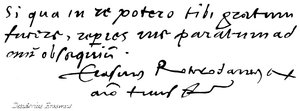 Si qua in re potero tibi gratum
facere, reperies me paratum ad
omne obsequium.
Erasmus Roterodamus
Desiderius Erasmus